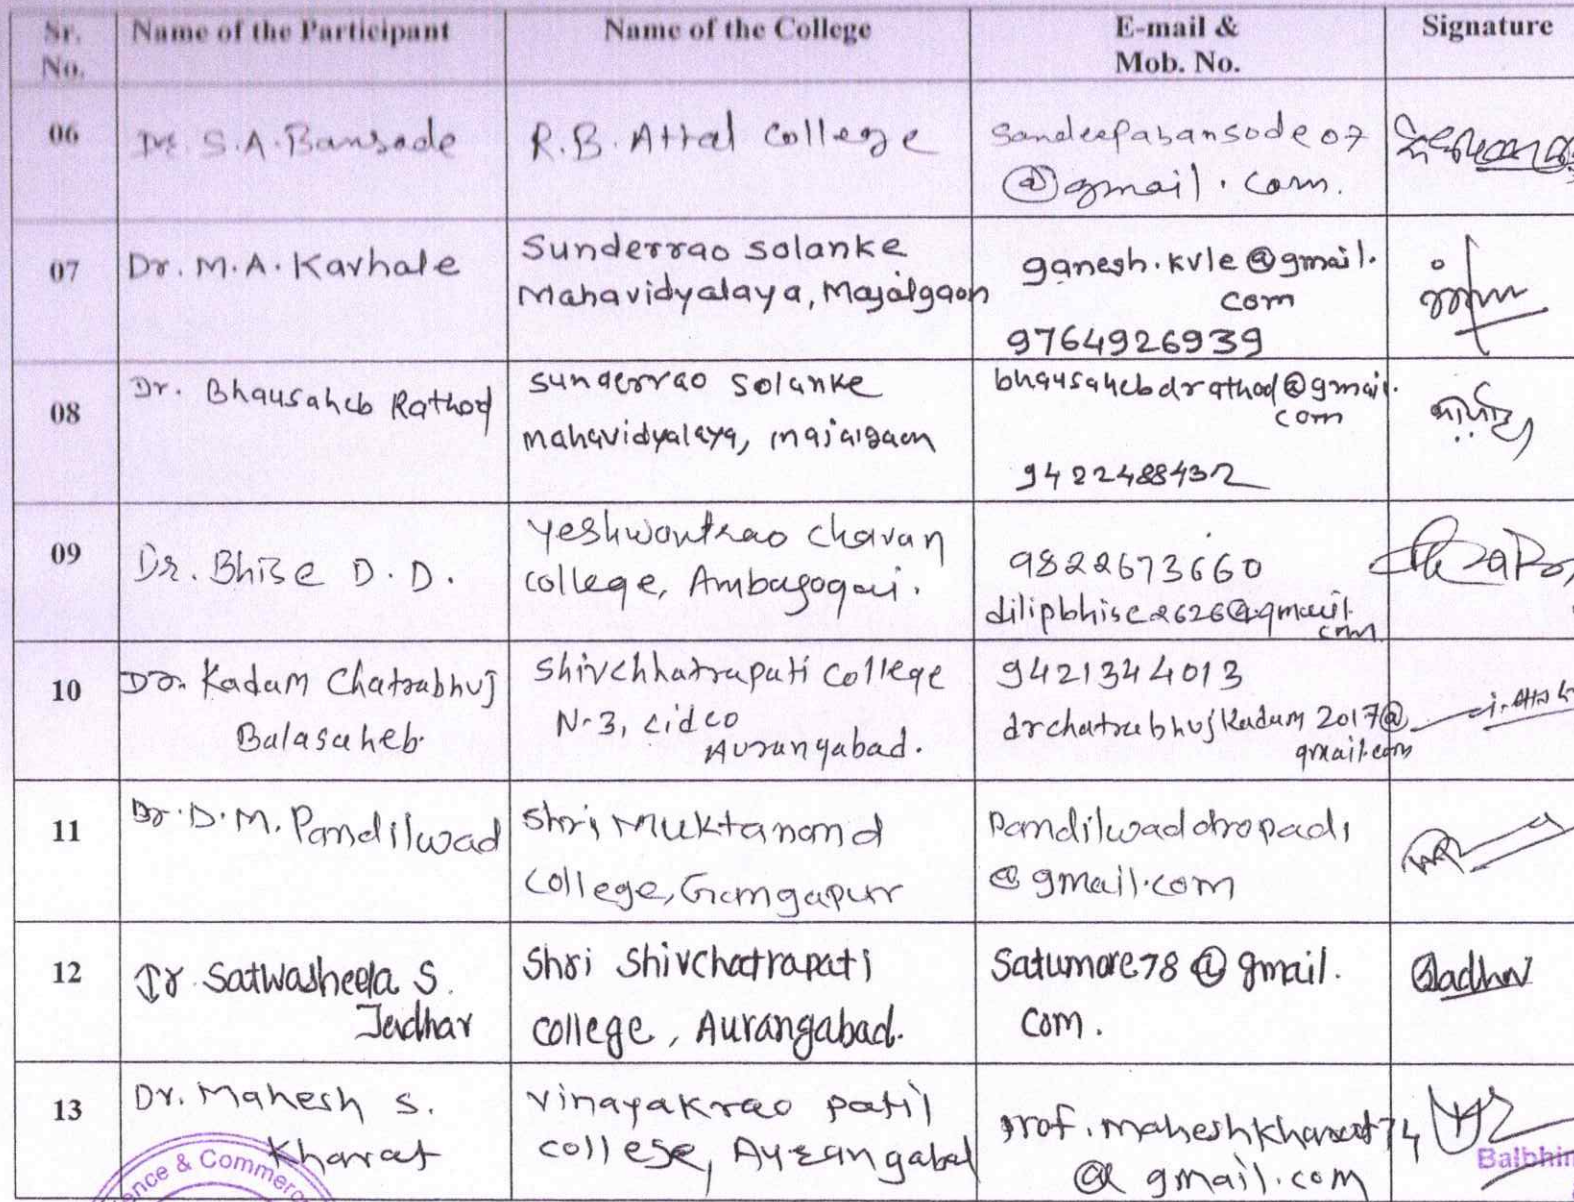 Sr. No.
Name of the Participant
Name of the College
E-mail & Mob. No.
Signature
06
Dr. S.A. Bansode
R.B. Attal College
Sandeepabansode07
@gmail.com.
07
Dr. M.A. Kavhale
Sunderrao Solanke
Mahavidyalaya, Majalgaon
ganesh.kvle@gmail.
com
9764926939
08
Dr. Bhausaheb Rathod
sunderrao solanke
mahavidyalaya, majalgaon
bhausahebdrathod@gmail.
com
9422488432
09
Dr. Bhise D.D.
Yeshwantrao Chavan
college, Ambajogai.
9822673660
dilipbhise2626@gmail.
com
10
Dr. Kadam Chatrabhuj
Balasaheb
Shivchhatrapati College
N-3, cidco
Aurangabad.
9421344013
drchatrabhujkadam2017@
gmail.com
11
Dr. D.M. Pandilwad
Shri Muktanand
College, Gangapurr
Pandilwaddropadi
@gmail.com
12
Dr Satwasheela S.
Jadhav
Shri Shivchatrapati
college, Aurangabad.
Satumore78@gmail.
com.
Jadhav
13
Dr. Mahesh S.
Kharat
Vinayakrao patil
college, Aurangabad
prof.maheshkharat74
@gmail.com
ence & Commerc
Balbhim